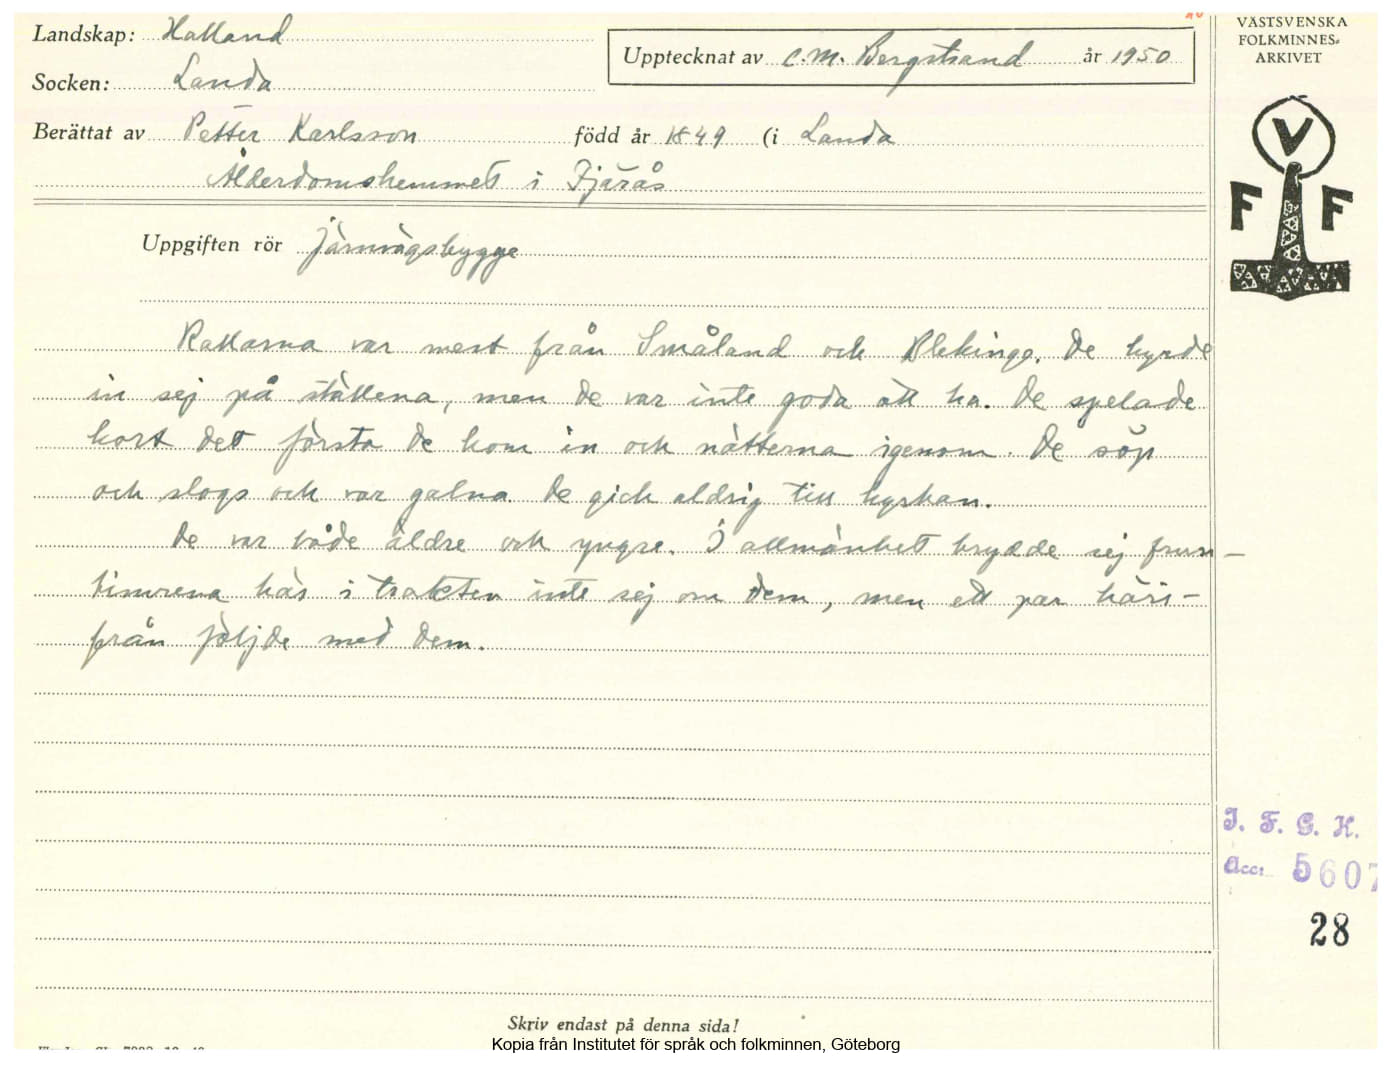 Landskap: Halland
Socken: Landa
Upptecknat av C.M. Bergstrand år 1950
Berättat av Petter Karlsson född år 1849 (i Landa
Ålderdomshemmet i Fjärås
Uppgiften rör Järnvägsbygge
Rallarna var mest från Småland och Blekinge. De hyrde
in sej på ställena, men de var inte goda att ha. De spelade
kort det första de kom in och nätterna igenom. De söp
och slogs och var galna. De gick aldrig till kyrkan.
De var både äldre och yngre. I allmänhet brydde sej frun-
timrena här i trakten inte sej om dem, men ett par häri-
från följde med dem.
VÄSTSVENSKA
FOLKMINNES-
ARKIVET
V
F F
I. F. G. H.
Acc: 5607
28
Skriv endast på denna sida!
Kopia från Institutet för språk och folkminnen, Göteborg